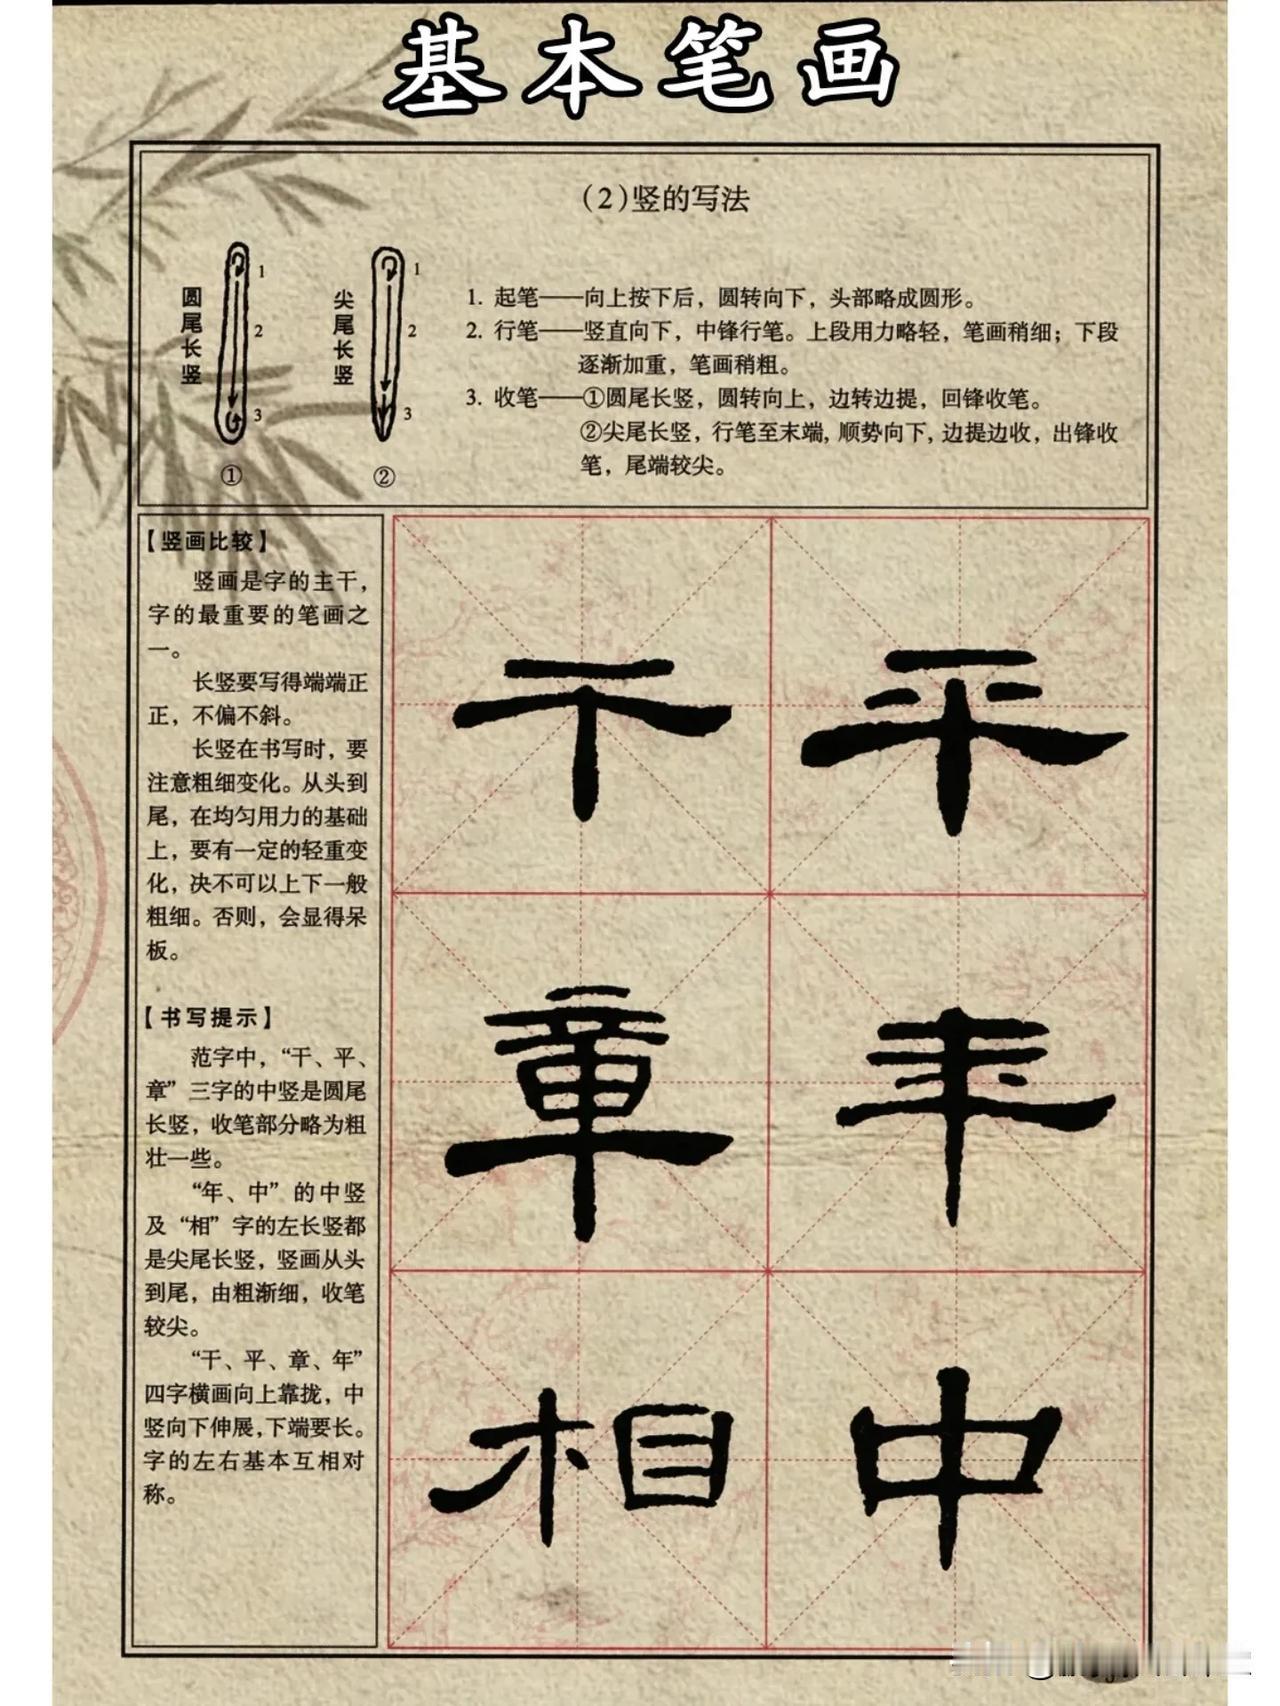 基本笔画
（2）竖的写法
圆尾长竖
1
2
3
①
尖尾长竖
1
2
3
②
1. 起笔——向上按下后，圆转向下，头部略成圆形。
2. 行笔——竖直向下，中锋行笔。上段用力略轻，笔画稍细；下段
逐渐加重，笔画稍粗。
3. 收笔——①圆尾长竖，圆转向上，边转边提，回锋收笔。
②尖尾长竖，行笔至末端，顺势向下，边提边收，出锋收
笔，尾端较尖。
【竖画比较】
竖画是字的主干，
字的最重要的笔画之
一。
长竖要写得端端正
正，不偏不斜。
长竖在书写时，要
注意粗细变化。从头到
尾，在均匀用力的基础
上，要有一定的轻重变
化，决不可以上下一般
粗细。否则，会显得呆
板。
【书写提示】
范字中，“干、平、
章”三字的中竖是圆尾
长竖，收笔部分略为粗
壮一些。
“年、中”的中竖
及“相”字的左长竖都
是尖尾长竖，竖画从头
到尾，由粗渐细，收笔
较尖。
“干、平、章、年”
四字横画向上靠拢，中
竖向下伸展，下端要长。
字的左右基本互相对
称。
干 平
章 年
相 中